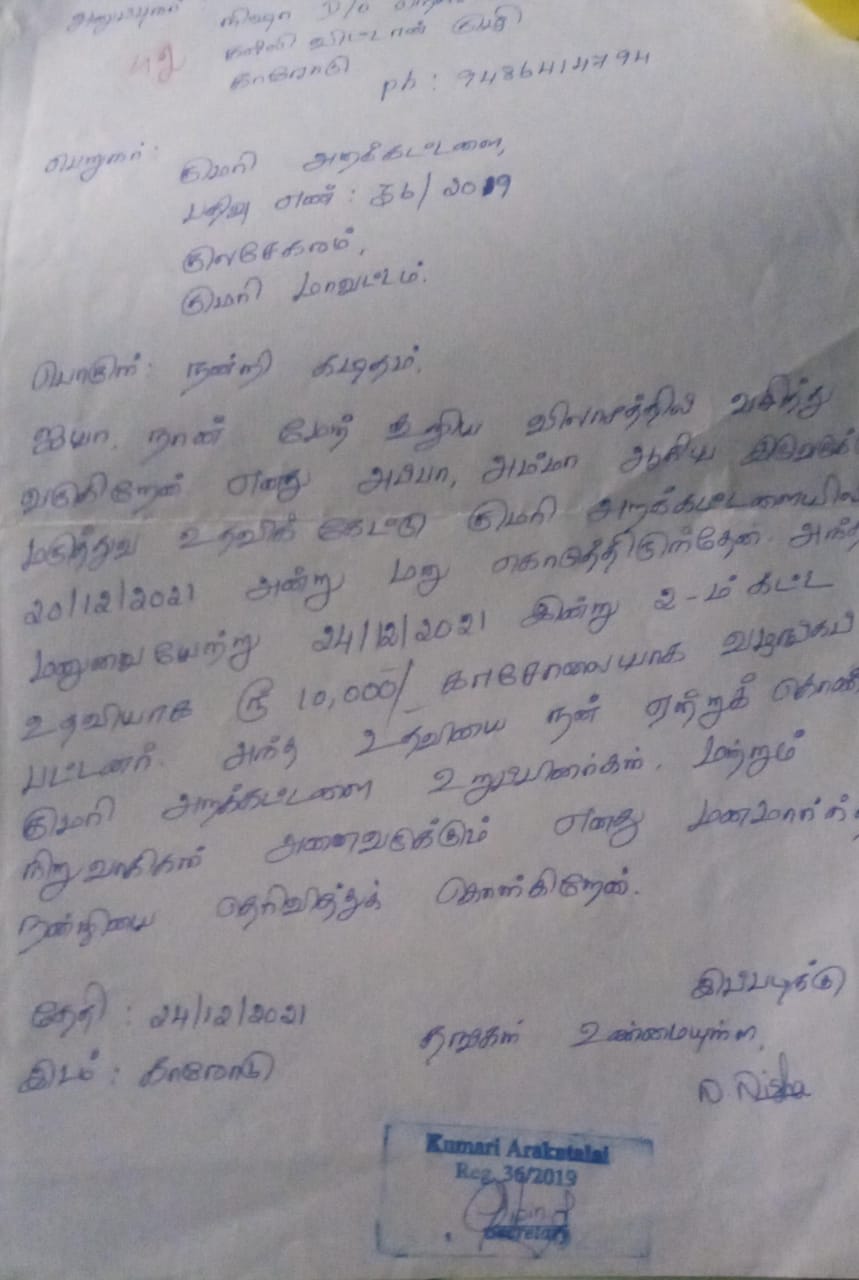 அனுப்புனர் நிஷா D/o
42 கன்னி விட்டான் குழி
காரோடு
ph : 9486414794
பெறுனர் :
குமரி அறக்கட்டளை,
பதிவு எண் : 36/2019
குலசேகரம்,
குமரி மாவட்டம்.
பொருள் : நன்றி கடிதம்.
ஐயா. நான் மேற் கூறிய விலாசத்தில் வசித்து
வருகிறேன் எனது அப்பா, அம்மா ஆகிய
மருத்துவ உதவிக் கேட்டு குமரி அறக்கட்டளையில்
20/12/2021 அன்று மனு கொடுத்திருந்தேன். அந்த
மனுவை யேற்று 24/12/2021 இன்று 2-ம் கட்ட
உதவியாக ரூ 10,000/- காசோலையாக வழங்கப்
பட்டனர். அந்த உதவியை நன் ஏற்றுக் கொண்
குமரி அறக்கட்டளை உறுப்பினர்கள். மற்றும்
நிறுவாகிகள் அனைவருக்கும் எனது மனமார்ந்த
நன்றியை தெரிவித்துக் கொள்கிறேன்.
இப்படிக்கு
தேதி : 24/12/2021
தங்கள் உண்மையுள்ள,
இடம் : காரோடு
D. Nisha
Kumari Arakatalai
Reg. 36/2019
Secretary